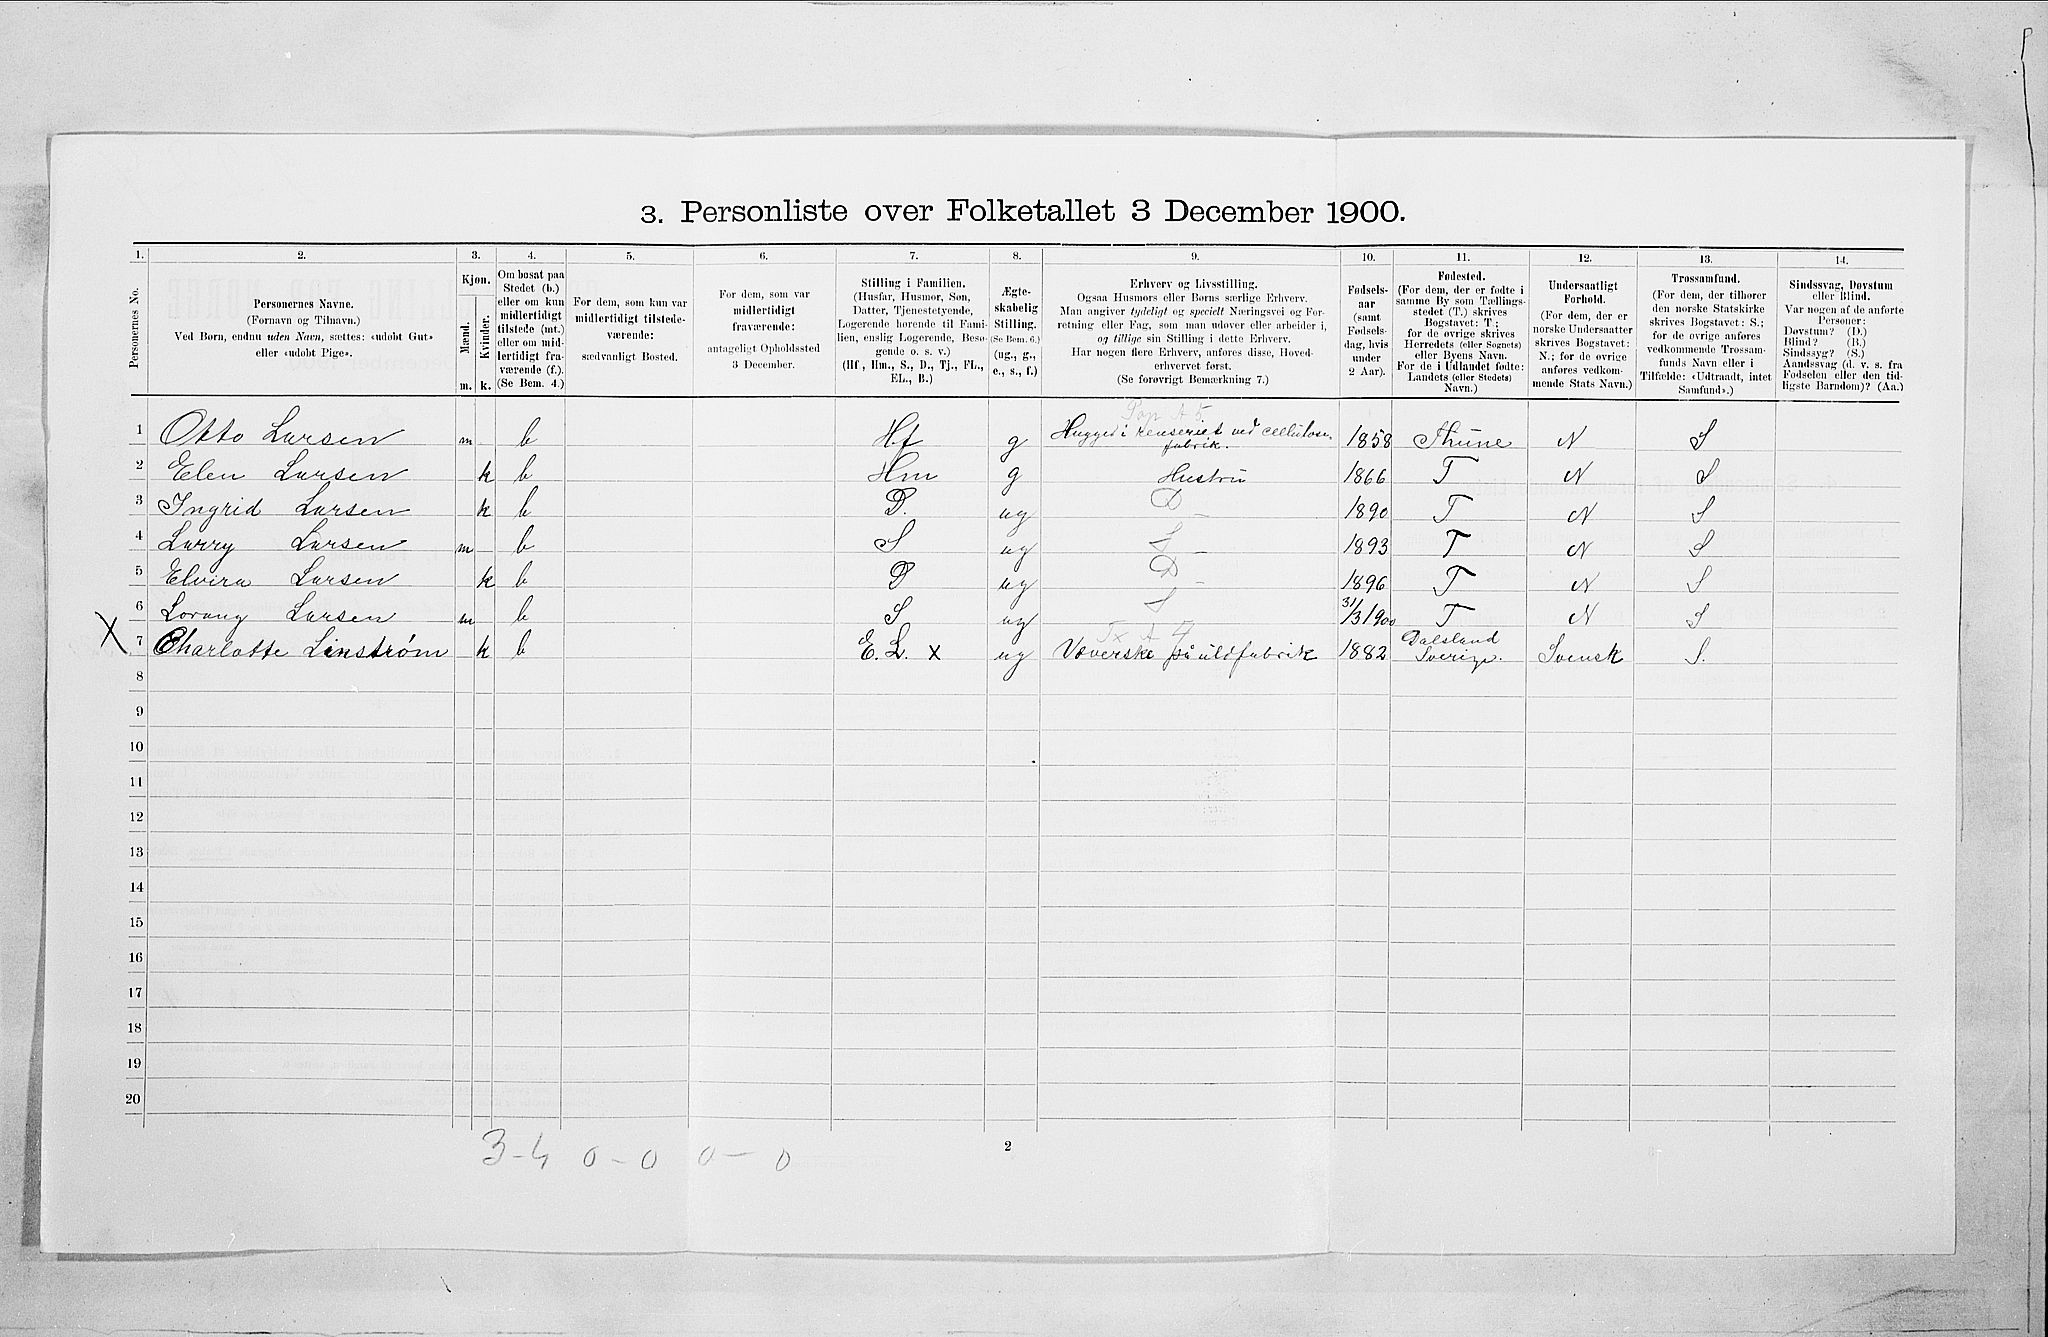 3. Personliste over Folketallet 3 December 1900.
1. 2. 3. 4. 5. 6. 7. 8. 9. 10. 11. 12. 13. 14.
Personernes No.
Personernes Navne.
(Fornavn og Tilnavn.)
Ved Børn, endnu uden Navn, sættes: «udøbt Gut»
eller «udøbt Pige».
Kjøn.
Mænd.
Kvinder.
m. k.
Om bosat paa
Stedet (b.)
eller om kun
midlertidigt
tilstede (mt.)
eller om mid-
lertidigt fra-
værende (f.).
(Se Bem. 4.)
For dem, som kun var
midlertidigt tilstede-
værende:
sædvanligt Bosted.
For dem, som var
midlertidigt
fraværende:
antageligt Opholdssted
3 December.
Stilling i Familien.
(Husfar, Husmor, Søn,
Datter, Tjenestetyende,
Logerende hørende til Fami-
lien, enslig Logerende, Besø-
gende o. s. v.)
(Hf, Hm., S., D., Tj., FL.,
EL., B.)
Ægte-
skabelig
Stilling.
(Se Bem. 6.)
(ug., g.,
e., s., f.)
Erhverv og Livsstilling.
Ogsaa Husmors eller Børns særlige Erhverv.
Man angiver tydeligt og specielt Næringsvei og For-
retning eller Fag, som man udøver eller arbeider i,
og tillige sin Stilling i dette Erhverv.
Har nogen flere Erhverv, anføres disse, Hoved-
erhvervet først.
(Se forøvrigt Bemærkning 7.)
Fødsels-
aar
(samt
Fødsels-
dag, hvis
under
2 Aar).
Fødested.
(For dem, der er fødte i
samme By som Tællings-
stedet (T.) skrives
Bogstavet: T.;
for de øvrige skrives
Herredets (eller Sognets)
eller Byens Navn.
For de i Udlandet fødte:
Landets (eller Stedets)
Navn.)
Undersaatligt
Forhold.
(For dem, der er
norske Undersaatter
skrives Bogstavet:
N.; for de øvrige
anføres vedkom-
mende Stats Navn.)
Trossamfund.
(For dem, der tilhører
den norske Statskirke
skrives Bogstavet: S.;
for de øvrige anføres
vedkommende Trossam-
funds Navn eller i
Tilfælde: «Udtraadt, intet
Samfund».)
Sindssvag, Døvstum
eller Blind.
Var nogen af de anførte
Personer:
Døvstum? (D.)
Blind? (B.)
Sindssyg? (S.)
Aandssvag (d. v. s. fra
Fødselen eller den tid-
ligste Barndom)? (Aa.)
Pap A 5
1 Otto Larsen m b Hf g Hugged i renseriet ved cellulose 1858 Thune N S
fabrik.
2 Elen Larsen k b Hm g Hustru 1866 T N S
3 Ingrid Larsen k b D. ug D – 1890 T N S
4 Larry Larsen m b S ug S – 1893 T N S
5 Elvira Larsen k b D ug D – 1896 T N S
6 Lorang Larsen m b S ug S 31/3 1900 T N S
X 7 Charlotte Linstrøm k b E. L. x ug Væverske på uldfabrik 1882 Dalsland Sverige. Svensk S.
8
9
10
11
12
13
14
15
16
17
18
19
20
3 – 4 0 – 0 0 – 0
2